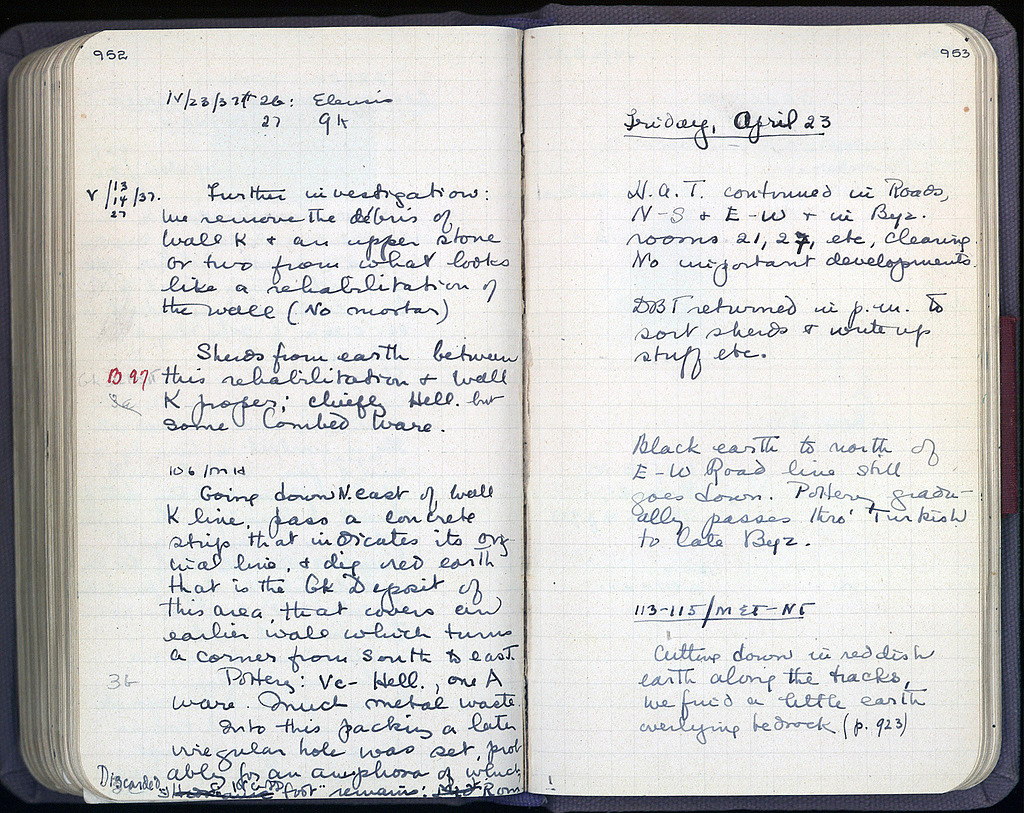 952
IV/23/37 # 26: Eleusis
27 9 K
V/13/37.
14
27
Further investigation:
We remove the debris of
Wall K + an upper stone
or two from what looks
like a rehabilitation of
the wall (No mortar)
Sherds from earth between
B 97
this rehabilitation & Wall
K proper; chiefly Hell. but
some Combed Ware.
106/ΜΗ
Going down N. east of Wall
K line, pass a concrete
strip that indicates its orig-
inal line, & dig red earth
that is the Gk Deposit of
this area, that covers an
earlier wall which turns
a corner from South to east.
36
Pottery: Vc - Hell., one A
ware. Much metal waste.
Into this packing a later
irregular hole was set, prob
ably for an amphora of which
Discarded
foot remains: Rom
953
Friday, April 23
H.A.T. continued in Roads,
N-S & E-W & in Byz.
rooms 21, 27, etc, clearing.
No important developments.
DBT returned in p.m. to
sort sherds & write up
stuff etc.
Black earth to north of
E-W Road line still
goes down. Pottery gradu-
ally passes thro' Turkish
to late Byz.
113-115/ΜΣΤ-ΝΓ
Cutting down in reddish
earth along the tracks,
we find a little earth
overlying bedrock (p. 923)